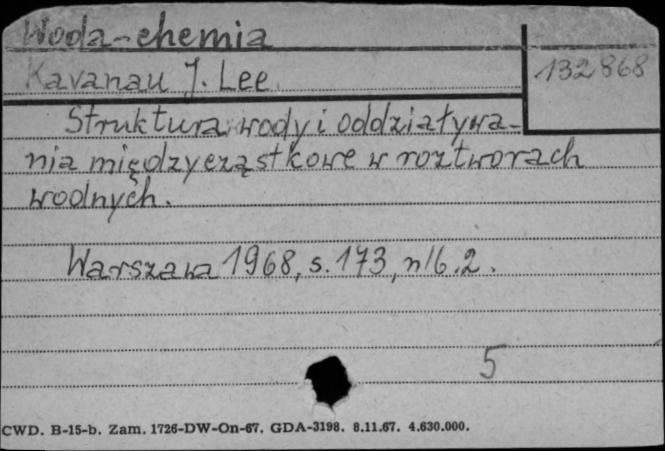 Woda-chemia
Kavanau J. Lee
132868
Struktura wody i oddziaływa-
nia międzycząstkowe w roztworach
wodnych.
Warszawa 1968, s. 173, nlb. 2.
5
CWD. B-15-b. Zam. 1726-DW-On-67. GDA-3198. 8.11.67. 4.630.000.